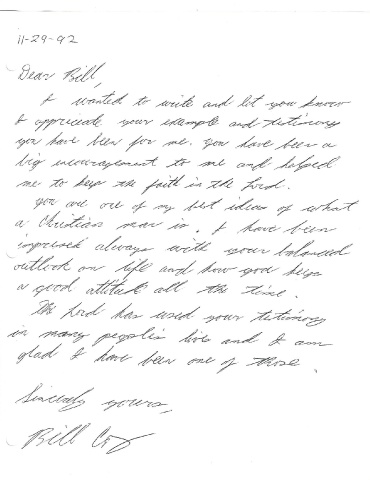 11-29-92
Dear Bill,
I wanted to write and let you know
I appreciate your example and testimony
you have been for me. You have been a
big encouragement to me and helped
me to keep the faith in the Lord.
You are one of my best ideas of what
a Christian man is. I have been
impressed always with your balanced
outlook on life and how you keep
a good attitude all the time.
The Lord has used your testimony
in many people's lives and I am
glad I have been one of those.
Sincerely yours,
Bill